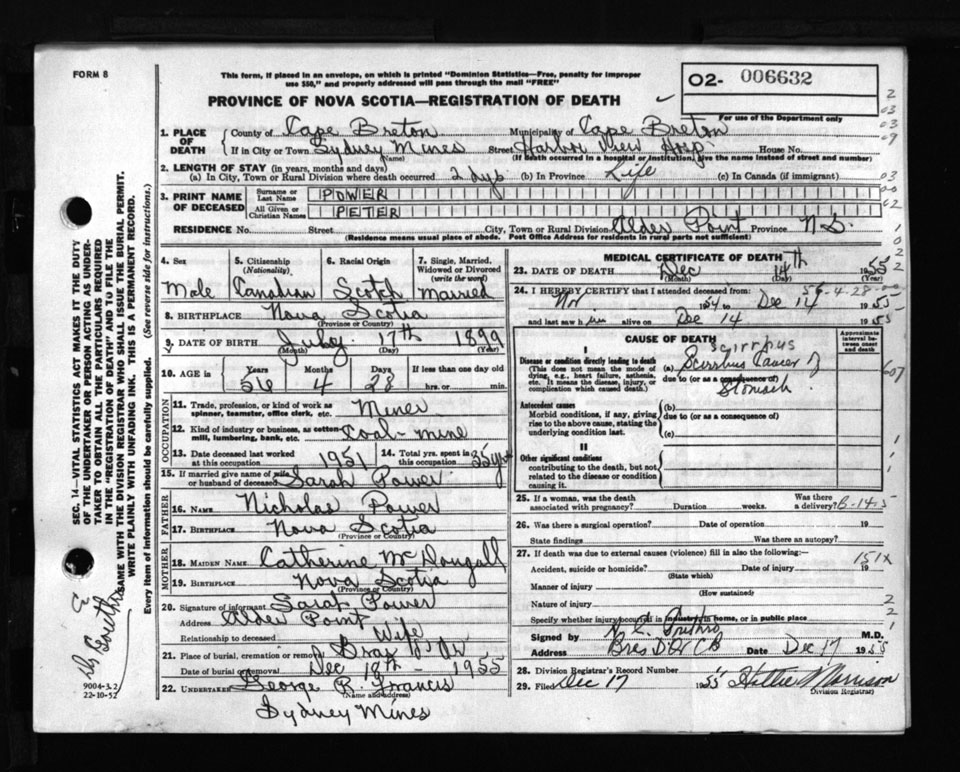 FORM 8
This form, if placed in an envelope, on which is printed "Dominion Statistics—Free, penalty for improper use $50," and properly addressed will pass through the mail "FREE"
O2- 006632
For use of the Department only
PROVINCE OF NOVA SCOTIA—REGISTRATION OF DEATH
1. PLACE OF DEATH
County of Cape Breton Municipality of Cape Breton
If in City or Town Sydney Mines (Name) Street Harbor View Hosp House No.
(If death occurred in a hospital or institution, give the name instead of street and number)
2. LENGTH OF STAY (in years, months and days)
(a) In City, Town or Rural Division where death occurred 2 dys (b) In Province Life (c) In Canada (if immigrant)
3. PRINT NAME OF DECEASED
Surname or Last Name POWER
All Given or Christian Names PETER
RESIDENCE No. Street City, Town or Rural Division Alder Point Province N.S.
(Residence means usual place of abode. Post Office Address for residents in rural parts not sufficient)
4. Sex Male
5. Citizenship (Nationality) Canadian
6. Racial Origin Scotch
7. Single, Married, Widowed or Divorced (write the word) Married
8. BIRTHPLACE Nova Scotia
(Province or Country)
9. DATE OF BIRTH July 17th 1899
(Month) (Day) (Year)
10. AGE Years 56 Months 4 Days 28 If less than one day old hrs. or min.
OCCUPATION
11. Trade, profession, or kind of work as spinner, teamster, office clerk, etc. Miner
12. Kind of industry or business, as cotton-mill, lumbering, bank, etc. Coal-mine
13. Date deceased last worked at this occupation 1951
14. Total yrs. spent in this occupation 35 yrs
15. If married give name of wife or husband of deceased Sarah Power
FATHER
16. Name Nicholas Power
17. Birthplace Nova Scotia
(Province or Country)
MOTHER
18. MAIDEN NAME Catherine McDougall
19. BIRTHPLACE Nova Scotia
(Province or Country)
20. Signature of informant Sarah Power
Address Alder Point
Relationship to deceased Wife
21. Place of burial, cremation or removal
Date of burial or removal Dec 19th - 1955
22. UNDERTAKER George R. Francis
(Name and address)
Sydney Mines
MEDICAL CERTIFICATE OF DEATH
23. DATE OF DEATH Dec 14th 1955
(Month) (Day) (Year)
56-4-28
24. I HEREBY CERTIFY that I attended deceased from:
Nov 1954 to Dec 14 1955
and last saw him alive on Dec 14 1955
CAUSE OF DEATH
Approximate interval between onset and death
scirrhus
I
Disease or condition directly leading to death
(This does not mean the mode of dying, e.g., heart failure, asthenia, etc. It means the disease, injury, or complication which caused death.)
(a) Scirrhus Cancer of
due to (or as a consequence of)
Stomach
Antecedent causes
Morbid conditions, if any, giving rise to the above cause, stating the underlying condition last.
(b)
due to (or as a consequence of)
(c)
II
Other significant conditions
contributing to the death, but not related to the disease or condition causing it.
25. If a woman, was the death associated with pregnancy? Duration weeks. Was there a delivery?
26. Was there a surgical operation? Date of operation 19
State findings Was there an autopsy?
27. If death was due to external causes (violence) fill in also the following:—
151X
Accident, suicide or homicide? Date of injury 19
(State which)
Manner of injury
(How sustained)
Nature of injury
Specify whether injury occurred in industry, in home, or in public place
Signed by M.D.
Address Date Dec 17 1955
28. Division Registrar's Record Number
29. Filed Dec 17 1955 Hattie Morrison
Division Registrar
SEC. 14—VITAL STATISTICS ACT MAKES IT THE DUTY OF THE UNDERTAKER OR PERSON ACTING AS UNDERTAKER TO OBTAIN ALL THE PARTICULARS REQUIRED IN THE "REGISTRATION OF DEATH" AND TO FILE THE SAME WITH THE DIVISION REGISTRAR WHO SHALL ISSUE THE BURIAL PERMIT.
WRITE PLAINLY WITH UNFADING INK. THIS IS A PERMANENT RECORD.
Every item of information should be carefully supplied. (See reverse side for instructions.)
9004-3.2
22-10-52